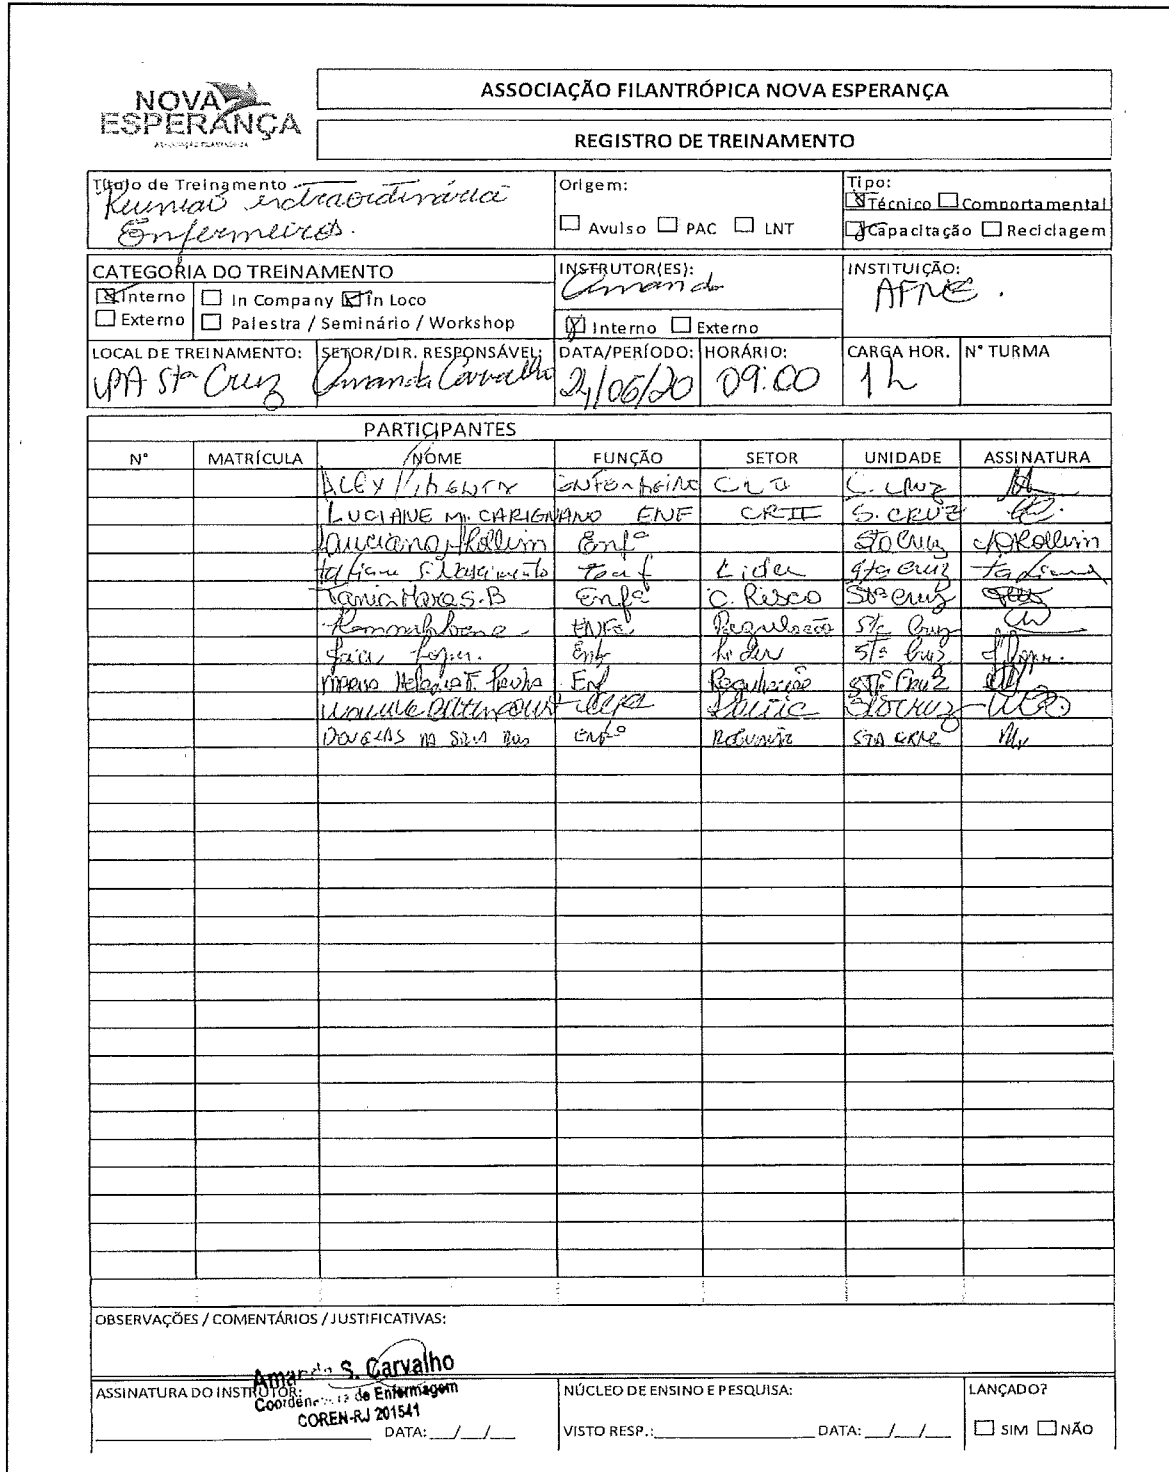 NOVA
ESPERANÇA
ASSOCIAÇÃO FILANTRÓPICA
ASSOCIAÇÃO FILANTRÓPICA NOVA ESPERANÇA
REGISTRO DE TREINAMENTO
Título de Treinamento
Reunião extraordinária
Enfermeiros.
Origem:
Avulso PAC LNT
Tipo:
Técnico Comportamental
Capacitação Reciclagem
CATEGORIA DO TREINAMENTO
Interno In Company In Loco
Externo Palestra / Seminário / Workshop
INSTRUTOR(ES):
Amanda
Interno Externo
INSTITUIÇÃO:
AFNE.
LOCAL DE TREINAMENTO: SETOR/DIR. RESPONSÁVEL: DATA/PERÍODO: HORÁRIO: CARGA HOR. N° TURMA
UPA Stª Cruz Amanda Carvalho 24/06/20 09:00 1h
PARTICIPANTES
N° MATRÍCULA NOME FUNÇÃO SETOR UNIDADE ASSINATURA
ALEX ENFERMEIRO S. CRUZ
LUCIANE M. CARIGNANO ENF S. CRUZ
Enfª Sta Cruz
Tatiane S. Nascimento Líder Sta Cruz Tatiane
Tania Mara S. B Enfª C. Risco Stª Cruz
ENFª Regulação Sta Cruz
Lopes Enfª Líder Stª Cruz
Maria Helena F. Enf Regulação Stª Cruz
Bittencourt Sta Cruz
DOUGLAS DA SILVA Enfº STA CRUZ
OBSERVAÇÕES / COMENTÁRIOS / JUSTIFICATIVAS:
Amanda S. Carvalho
Coordenadora de Enfermagem
COREN-RJ 201541
ASSINATURA DO INSTRUTOR:
DATA: __/__/__
NÚCLEO DE ENSINO E PESQUISA:
VISTO RESP.: DATA: __/__/__
LANÇADO?
SIM NÃO